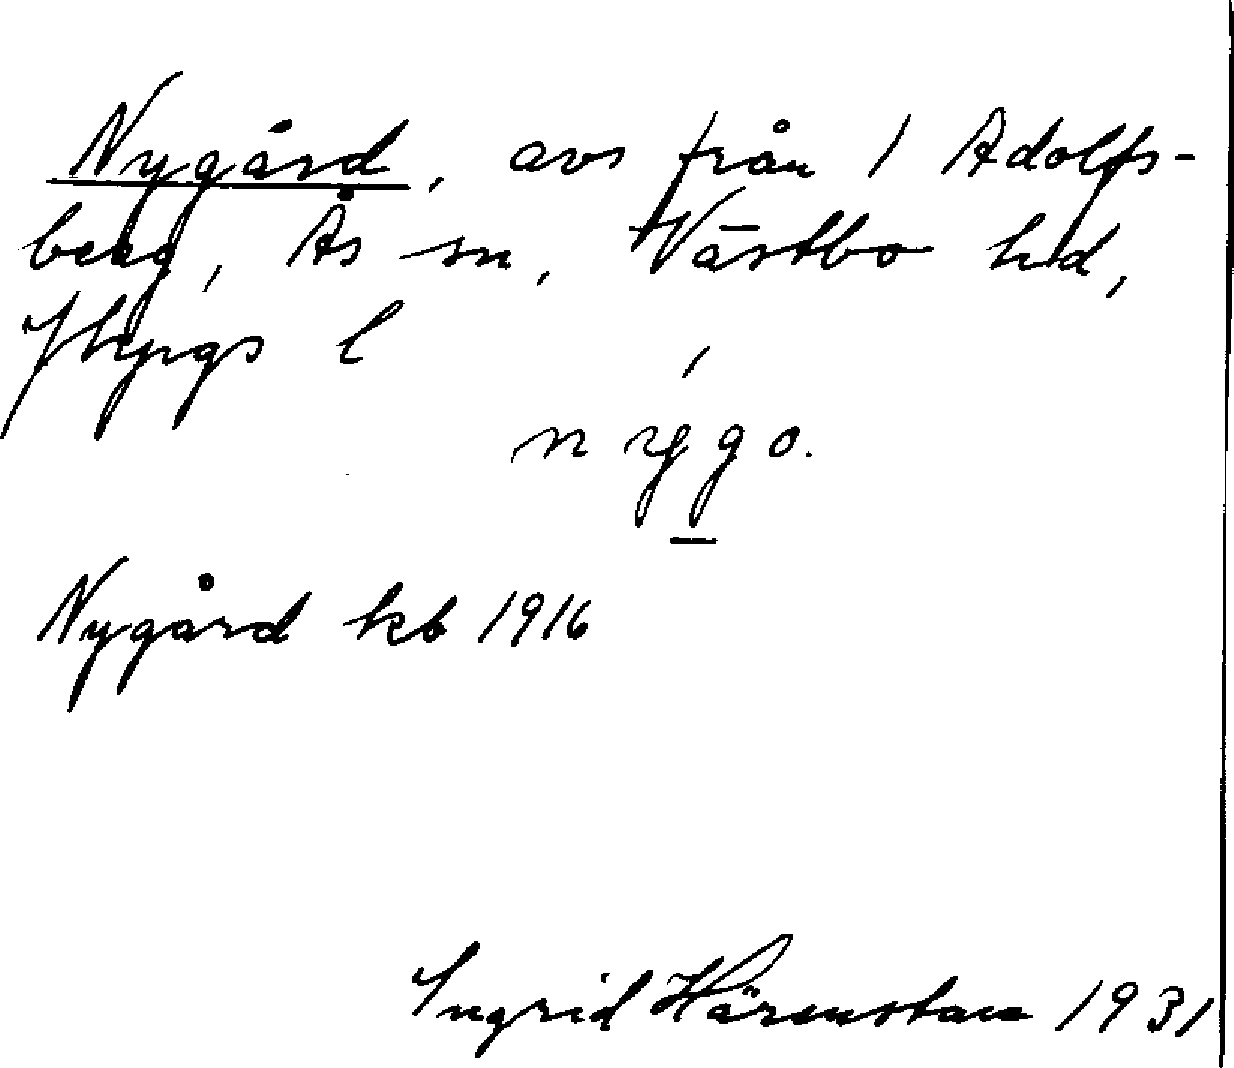 Nygård, avs från 1 Adolfs-
berg, Ås sn, Västbo hd,
Jkpgs l
nýgo.
Nygård kb 1916
Ingrid Härenstam 1931